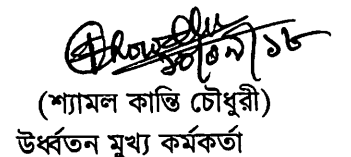 ১০/০৭/১৮
(শ্যামল কান্তি চৌধুরী)
উর্ধ্বতন মুখ্য কর্মকর্তা